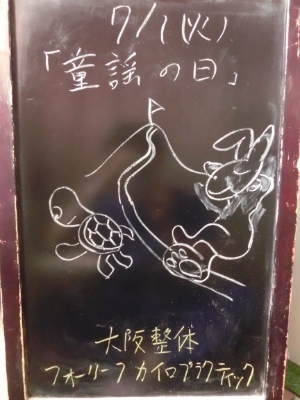 7/1(火)
「童謡の日」
大阪整体
フォーリーフカイロプラクティック